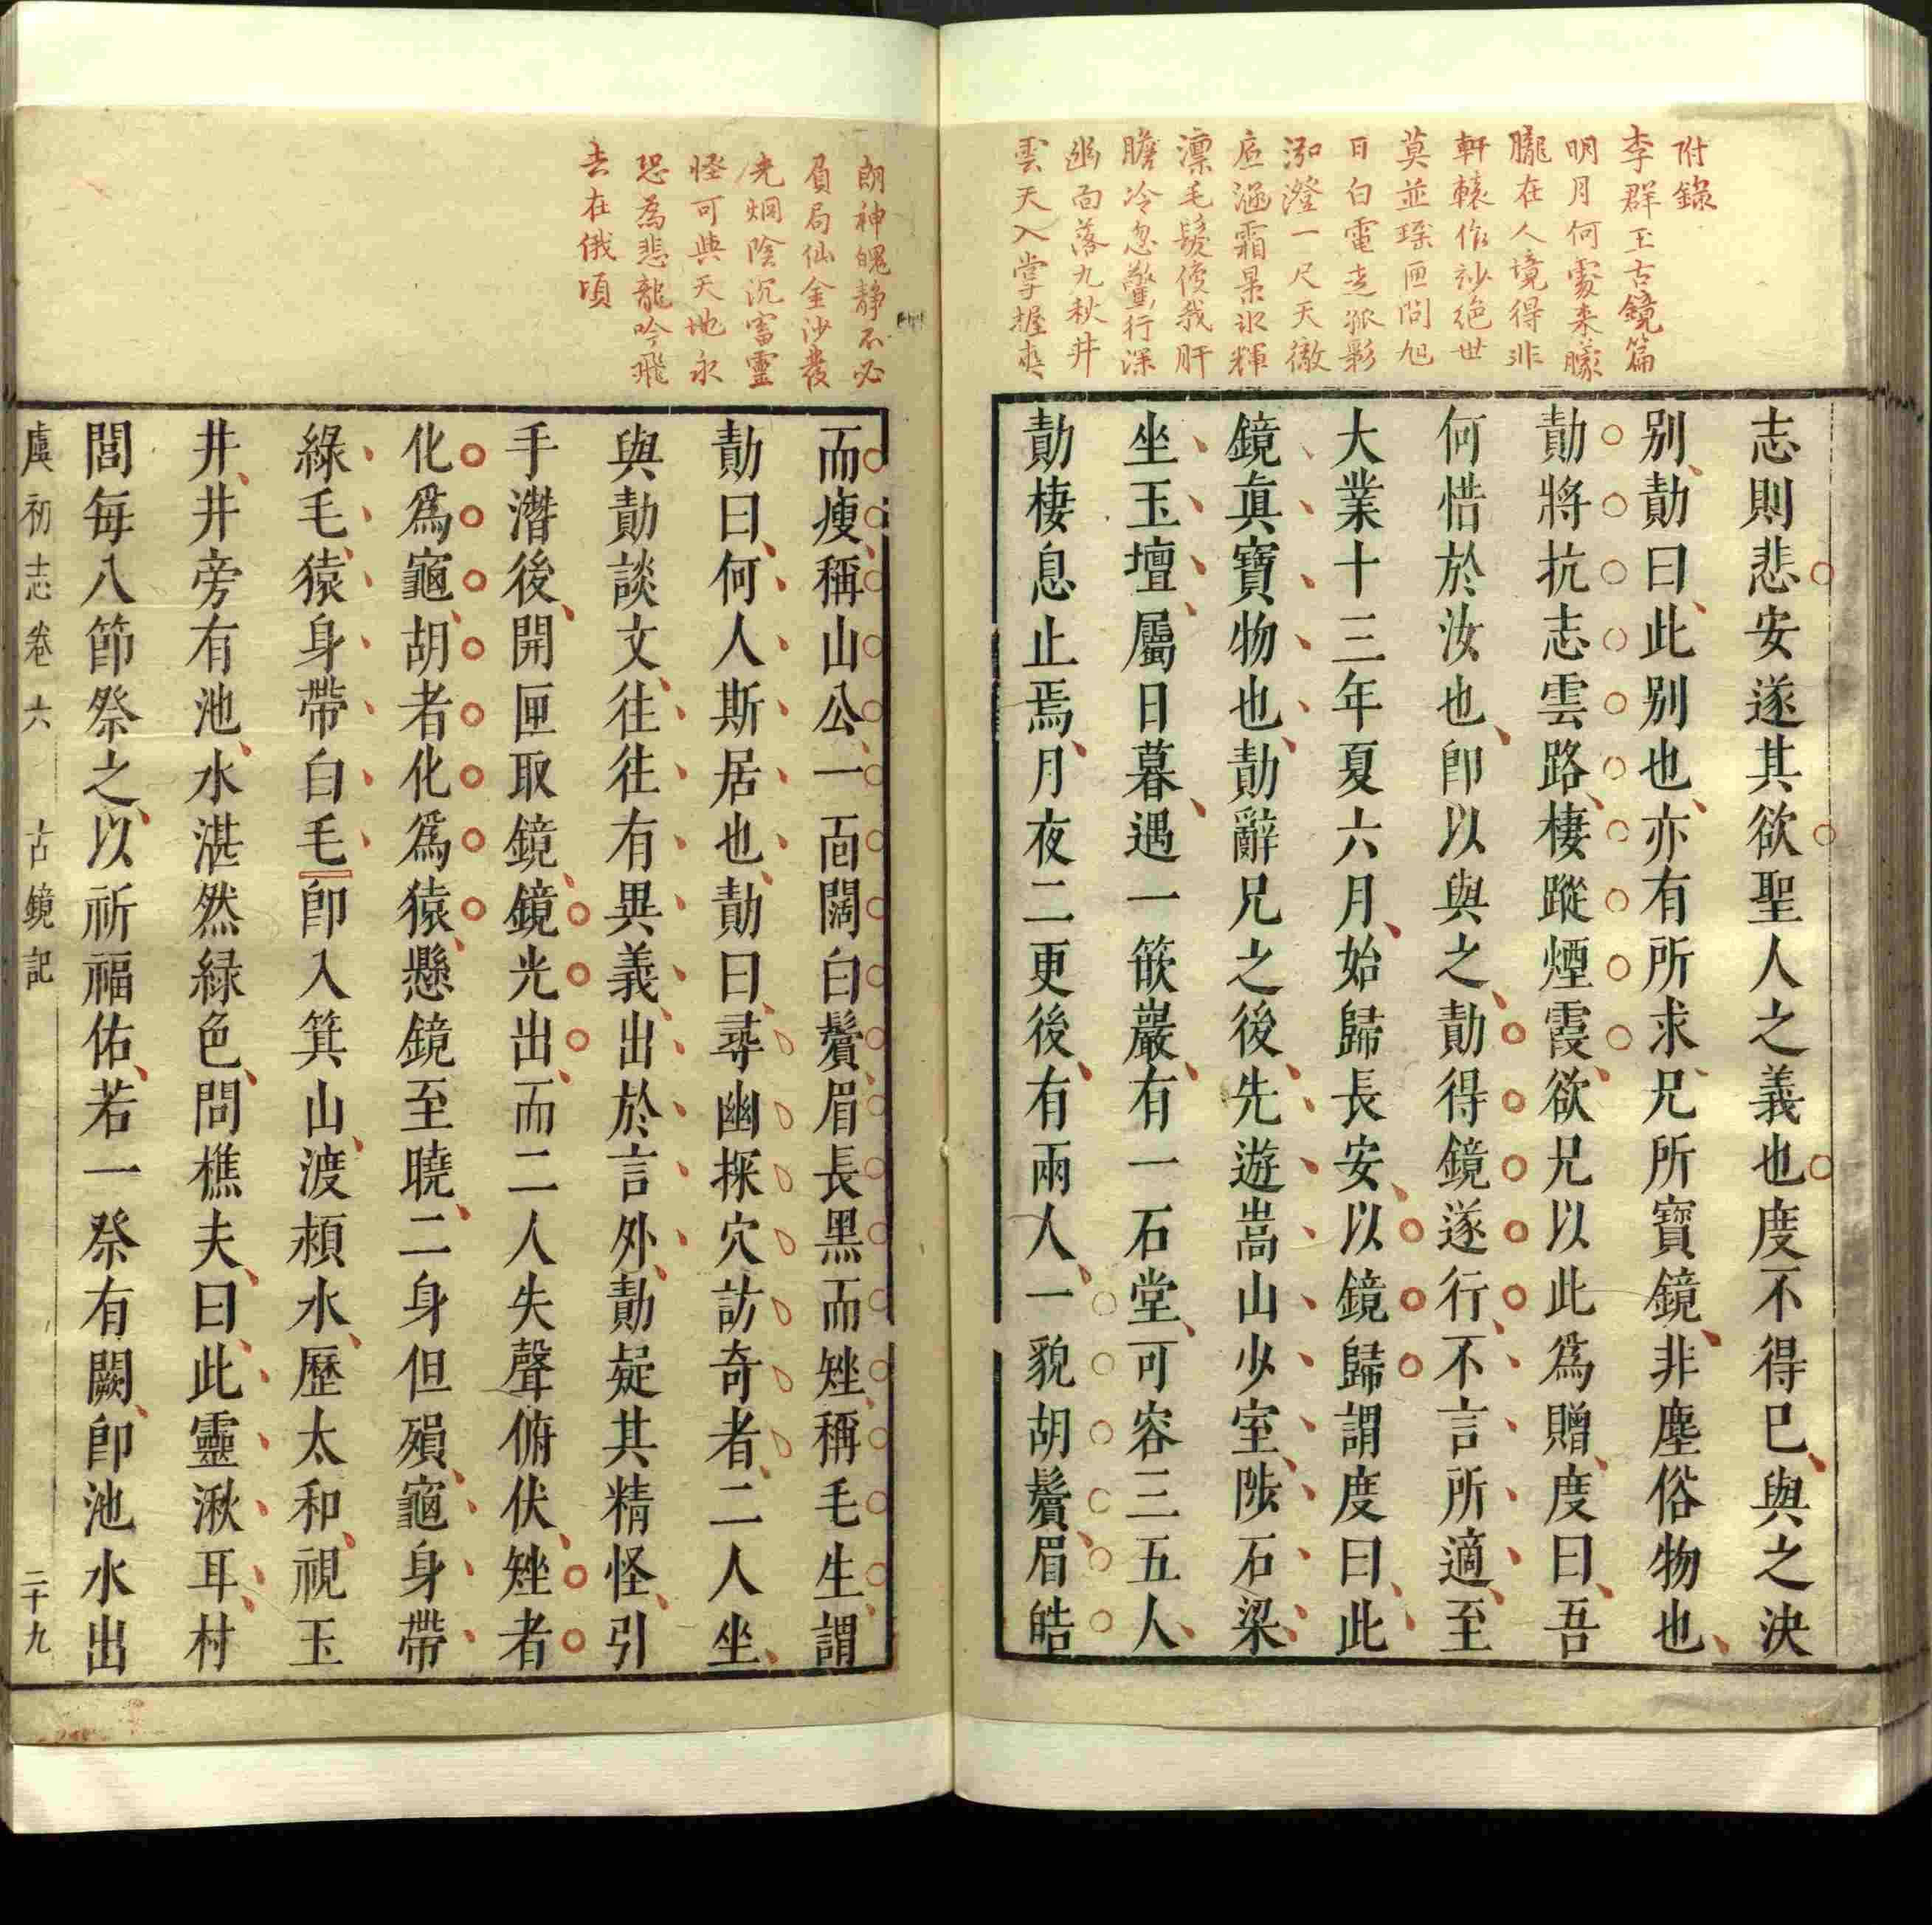 附錄
李群玉古鏡篇
明月何處来朦
朧在人境得非
軒轅作玅絶世
莫並瑶匣問旭
日白電走孤彩
泓澄一尺天徹
底涵霜景氷輝
凛毛髮使我肝
膽冷忽驚行深
幽面落九秋井
雲天入掌握爽
志則悲安遂其欲聖人之義也度不得已與之決
别勣曰此别也亦有所求兄所寶鏡非塵俗物也
勣將抗志雲路棲蹤煙霞欲兄以此爲贈度曰吾
何惜於汝也卽以與之勣得鏡遂行不言所適至
大業十三年夏六月始歸長安以鏡歸謂度曰此
鏡眞寶物也勣辭兄之後先遊嵩山少室陟石梁
坐玉壇屬日暮遇一嵌巖有一石堂可容三五人
勣棲息止焉月夜二更後有兩人一貌胡鬢眉皓
朗神魄静不必
負局仙金沙發
光炯陰沉畜靈
怪可與天地永
恐為悲龍吟飛
去在俄頃
而瘦稱山公一面闊白鬢眉長黑而矬稱毛生謂
勣曰何人斯居也勣曰尋幽探穴訪奇者二人坐
與勣談文往往有異義出於言外勣疑其精怪引
手潛後開匣取鏡鏡光出而二人失聲俯伏矬者
化爲龜胡者化爲猿懸鏡至曉二身但殞龜身帶
綠毛猿身帶白毛卽入箕山渡潁水歷太和視玉
井井旁有池水湛然緑色問樵夫曰此靈湫耳村
閭每八節祭之以祈福佑若一祭有闕卽池水出
虞初志卷六 古鏡記 二十九